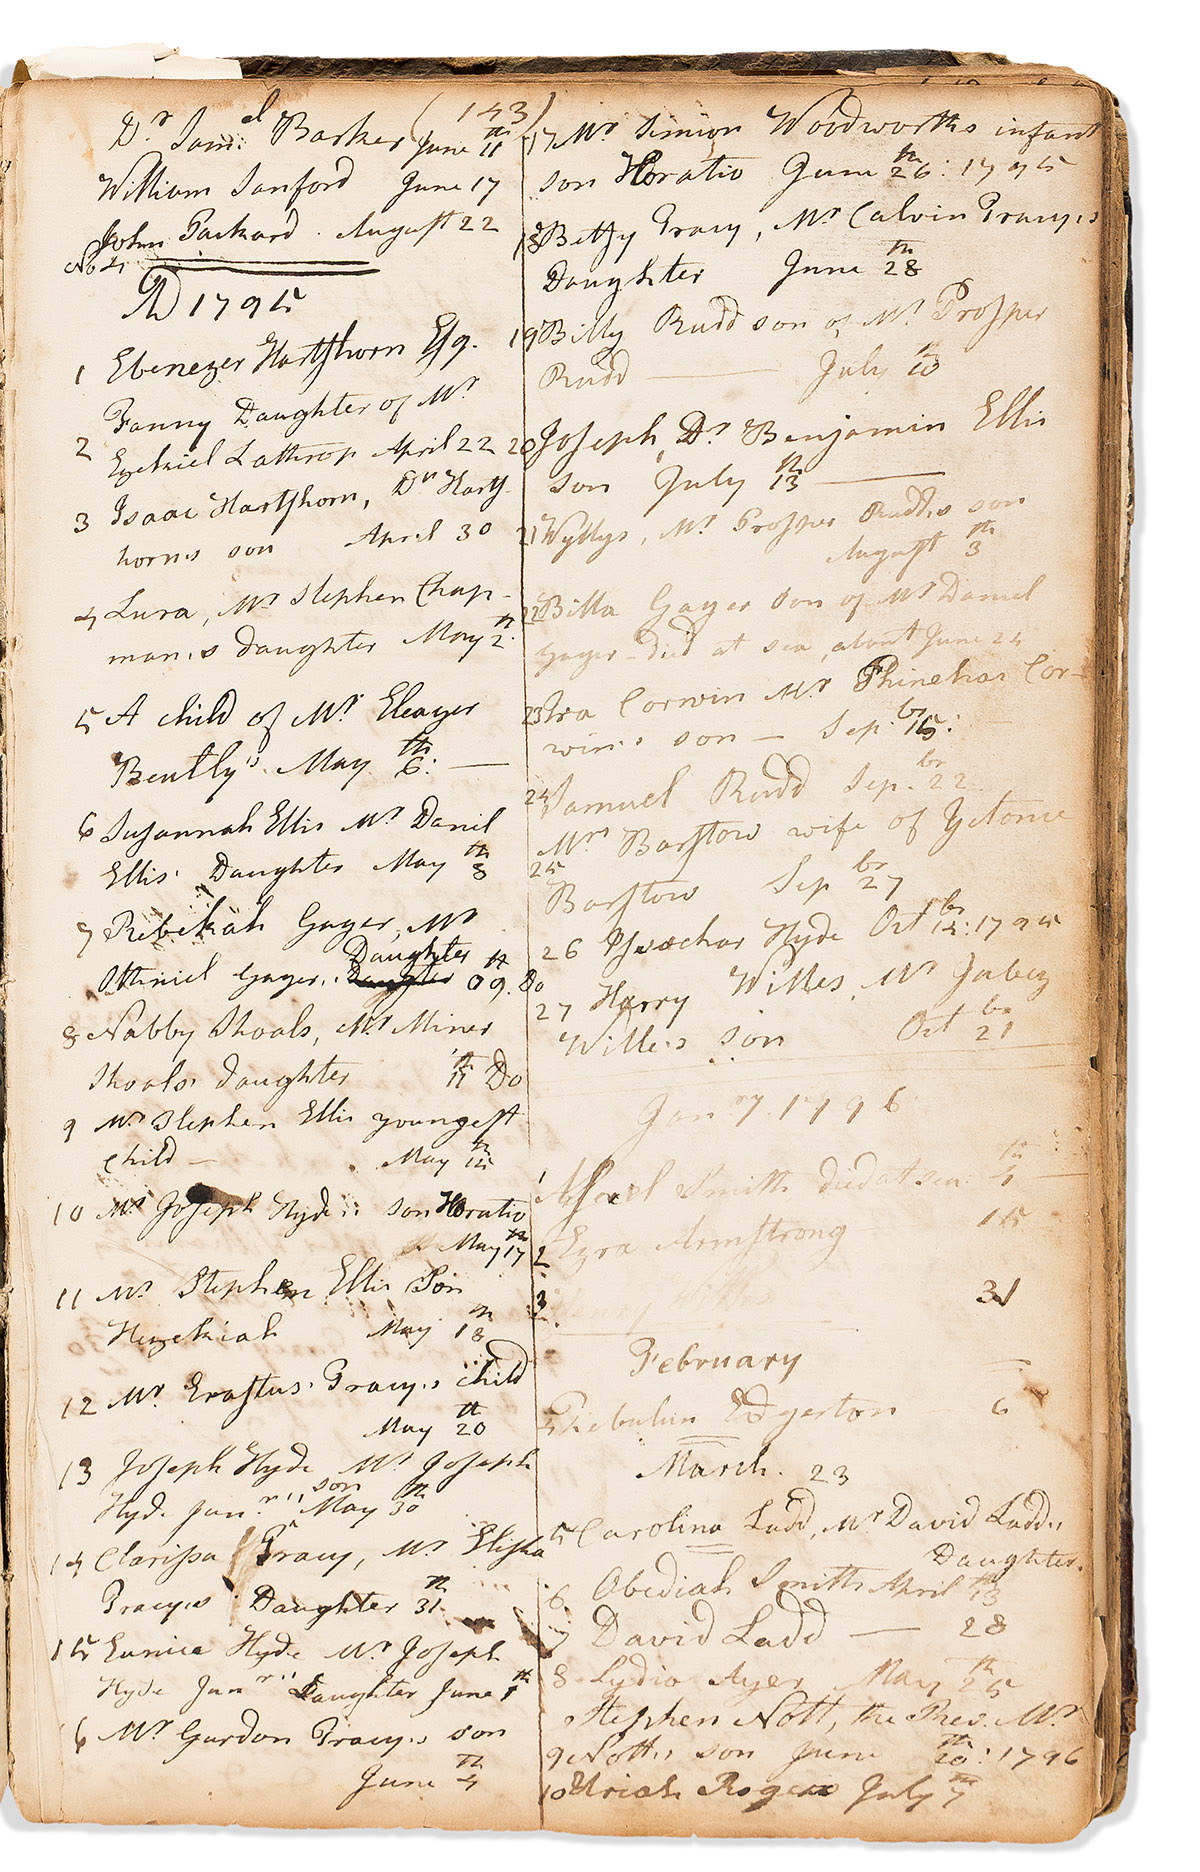 (143)
Dr Saml Barker June 11th
William Sanford June 17
John Packard. August 22
No 4
AD 1795
1 Ebenezer Hartshorn Esq.
Fanny Daughter of Mr
2 Ezekiel Lathrop April 22
3 Isaac Hartshorn, Dn Harts-
horn's son April 30
4 Lura, Mr Stephen Chap-
man's daughter May 2th
5 A child of Mr Eleazer
Bently's May 6th: —
6 Susannah Ellis Mr Daniel
Ellis' Daughter May 8th
7 Rebekah Gager, Mr
Daughter
Othniel Gager's 09th. Do
8 Nabby Shoals, Mr Miner
Shoals' daughter 11th Do
9 Mr Stephen Ellis youngest
child — May 15th
10 Mr Joseph Hyde's son Horatio
May 17th
11 Mr Stephen Ellis Son
Hezekiah May 18th
12 Mr Erastus Tracy's child
May 20th
13 Joseph Hyde Mr Joseph
son
Hyde Junr's May 30th
14 Clarissa Tracy, Mr Elisha
Tracy's Daughter 31th
15 Eunice Hyde Mr Joseph
Hyde Junr's Daughter June 1th
6 Mr Gurdon Tracy's son
June 4th
17 Mr Simion Woodworths infant
son Horatio June 26th: 1795
18 Betsy Tracy, Mr Calvin Tracy's
Daughter June 28th
19 Billy Rudd son of Mr Prosper
Rudd — July 10th
20 Joseph, Dr Benjamin Ellis
son July 13th —
21 Wyllys, Mr Prosper Rudd's son
August 3th
22 Billa Gager son of Mr Daniel
Gager - died at sea, about June 24
23 Ira Corwin Mr Phinehas Cor-
win's son — Sepbr 15:
24 Samuel Rudd Sepbr. 22
Mrs Barstow wife of Yetonce
25
Barstow Sepbr 27
26 Issachar Hyde Octbr 14: 1795
27 Harry Willes, Mr Jabez
Willes son Octbr 21
Janry. 1796
1 Smith died at sea. 4th
2 Ezra Armstrong 15
3 31
February
4 Zebulun Edgerton 6
March. 23
5 Carolina Ladd, Mr David Ladd's
Daughter.
6 Obediah Smith April 13th
7 David Ladd — 28
8 Lydia Ayer May 25th
Stephen Nott, the Rev. Mr
9 Nott's son June 20th: 1796
10 Uriah Rogers July 7th